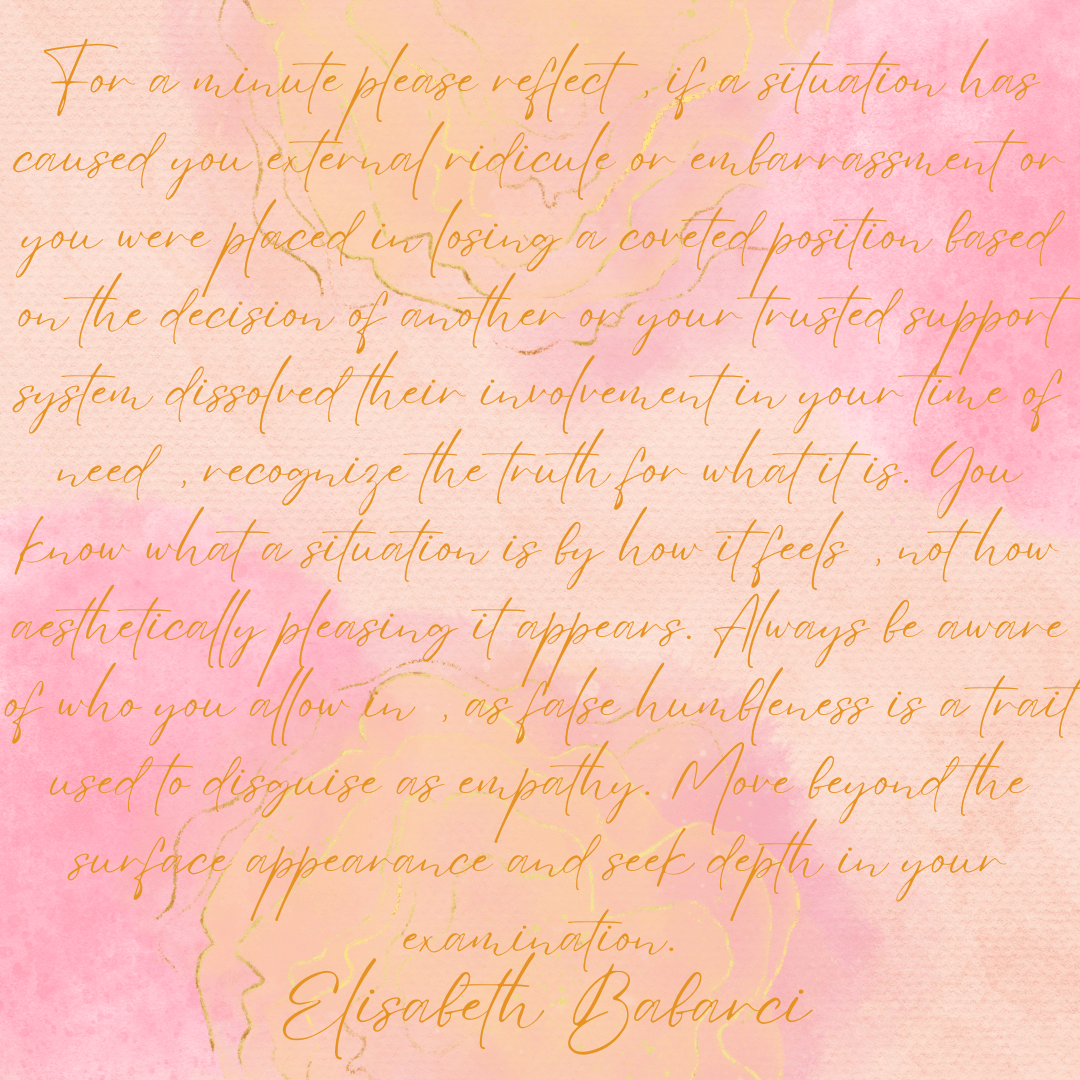 For a minute please reflect , if a situation has
caused you external ridicule or embarrassment or
you were placed in losing a coveted position based
on the decision of another or your trusted support
system dissolved their involvement in your time of
need , recognize the truth for what it is. You
know what a situation is by how it feels , not how
aesthetically pleasing it appears. Always be aware
of who you allow in , as false humbleness is a trait
used to disguise as empathy. Move beyond the
surface appearance and seek depth in your
examination.
Elisabeth Babarci